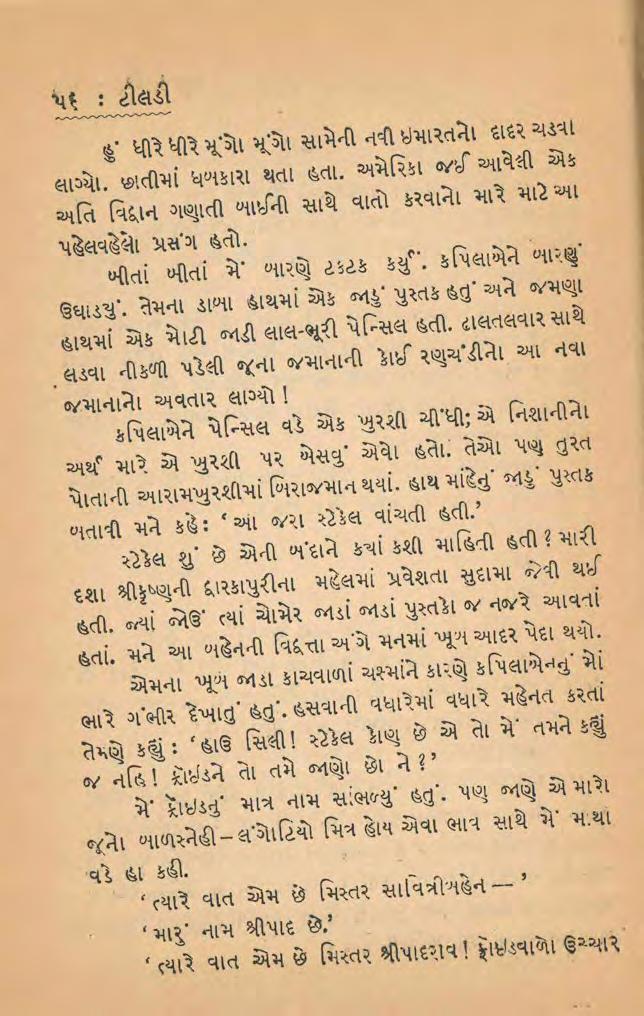 ૫૬ : ટીલડી
હું ધીરે ધીરે મૂંગો મૂંગો સામેની નવી ઇમારતનો દાદર ચડવા
લાગ્યો. છાતીમાં ધબકારા થતા હતા. અમેરિકા જઈ આવેલી એક
અતિ વિદ્વાન ગણાતી બાઈની સાથે વાતો કરવાનો મારે માટે આ
પહેલવહેલો પ્રસંગ હતો.
બીતાં બીતાં મેં બારણે ટકટક કર્યું. કપિલાબેને બારણું
ઉઘાડયું. તેમના ડાબા હાથમાં એક જાડું પુસ્તક હતું અને જમણા
હાથમાં એક મોટી જાડી લાલ-ભૂરી પેન્સિલ હતી. ઢાલતલવાર સાથે
લડવા નીકળી પડેલી જૂના જમાનાની કોઈ રણચંડીનો આ નવા
જમાનાનો અવતાર લાગ્યો !
કપિલાબેને પેન્સિલ વડે એક ખુરશી ચીંધી; એ નિશાનીનો
અર્થ મારે એ ખુરશી પર બેસવું એવો હતો. તેઓ પણ તુરત
પોતાની આરામખુરશીમાં બિરાજમાન થયાં. હાથ માંહેનું જાડું પુસ્તક
બતાવી મને કહે : ‘આ જરા સ્ટેકેલ વાંચતી હતી.’
સ્ટેકેલ શું છે એની બંદાને કયાં કશી માહિતી હતી ? મારી
દશા શ્રીકૃષ્ણની દ્વારકાપુરીના મહેલમાં પ્રવેશતા સુદામા જેવી થઈ
હતી. જ્યાં જોઉં ત્યાં ચોમેર જાડાં જાડાં પુસ્તકો જ નજરે આવતાં
હતાં. મને આ બહેનની વિદ્વત્તા અંગે મનમાં ખૂબ આદર પેદા થયો.
એમના ખૂબ જાડા કાચવાળાં ચશ્માંને કારણે કપિલાબેનનું મોં
ભારે ગંભીર દેખાતું હતું. હસવાની વધારેમાં વધારે મહેનત કરતાં
તેમણે કહ્યું : ‘હાઉ સિલી! સ્ટેકેલ કોણ છે એ તો મેં તમને કહ્યું
જ નહિ! ફ્રૉઇડને તો તમે જાણો છો ને?’
મેં ફ્રૉઇડનું માત્ર નામ સાંભળ્યું હતું. પણ જાણે એ મારો
જૂનો બાળસ્નેહી–લંગોટિયો મિત્ર હોય એવા ભાવ સાથે મેં માથા
વડે હા કહી.
‘ત્યારે વાત એમ છે મિસ્તર સાવિત્રીબહેન—’
‘મારું નામ શ્રીપાદ છે.’
‘ત્યારે વાત એમ છે મિસ્તર શ્રીપાદરાવ! ફ્રૉઇડવાળો ઉચ્ચાર